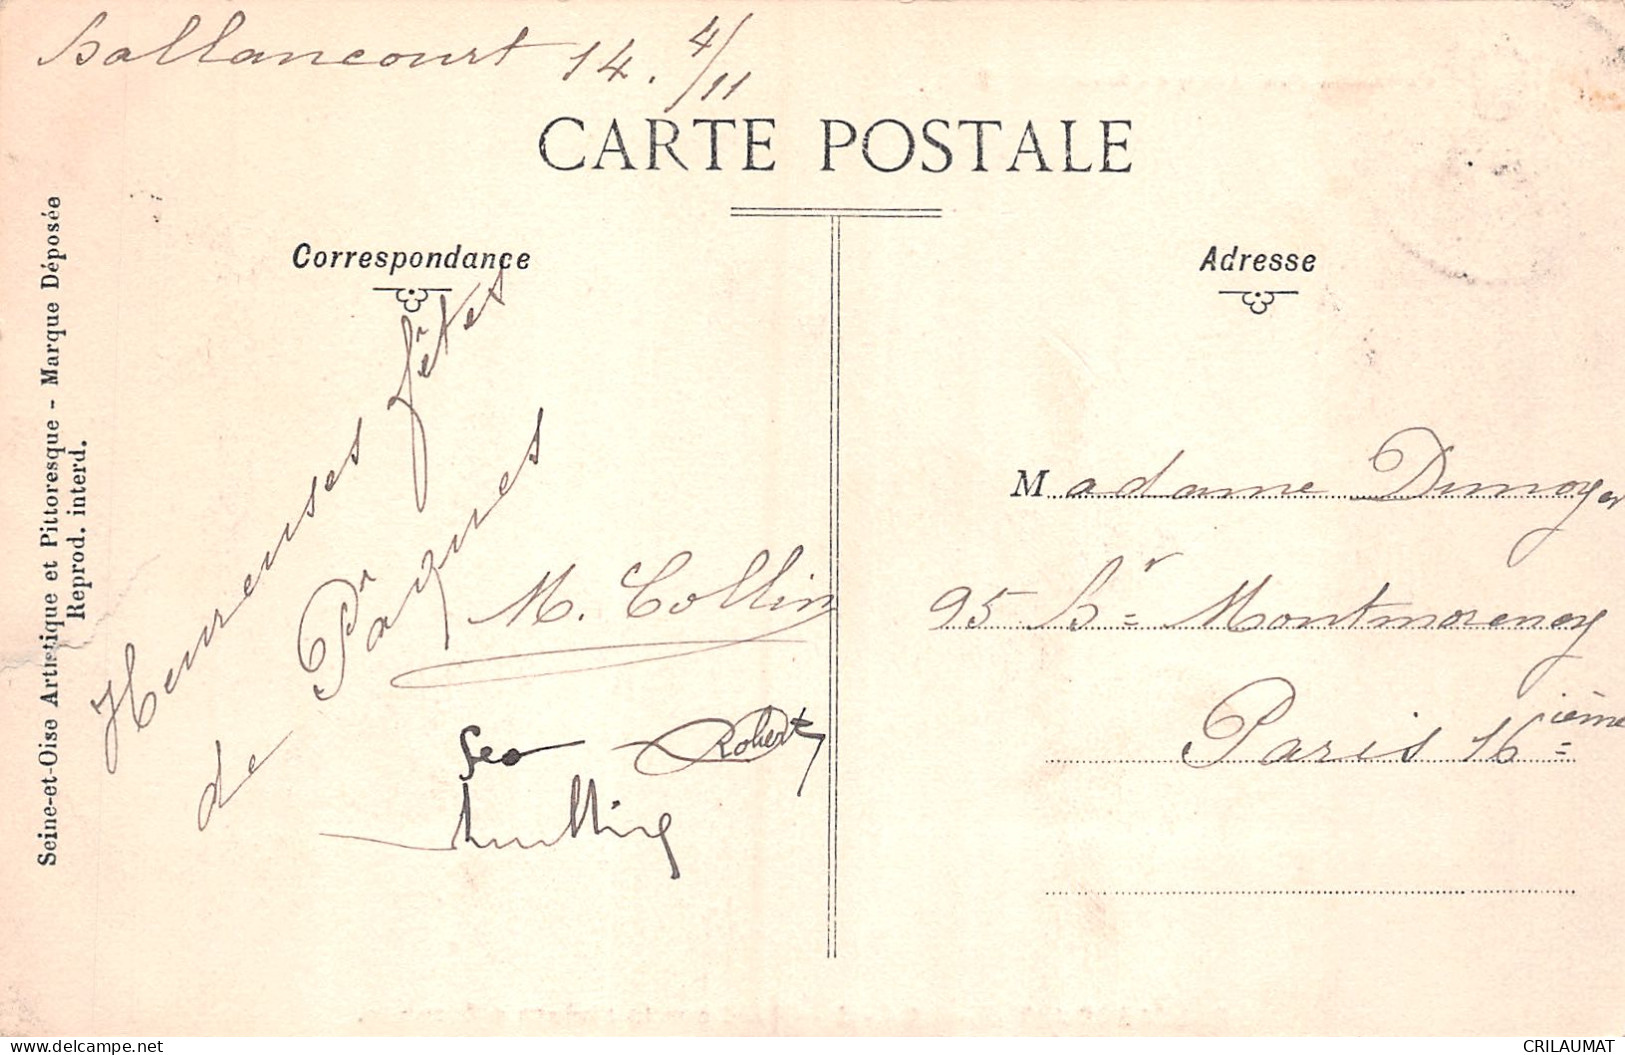 Ballancourt 14. 4/11
CARTE POSTALE
Correspondance
Adresse
Heureuses fêtes
de Pâques
M. Collin
Geo Robert
Madame Dunoyer
95 Bd Montmorency
Paris 16ième
Seine-et-Oise Artistique et Pittoresque - Marque Déposée
Reprod. interd.
delcampe.net
CRILAUMAT